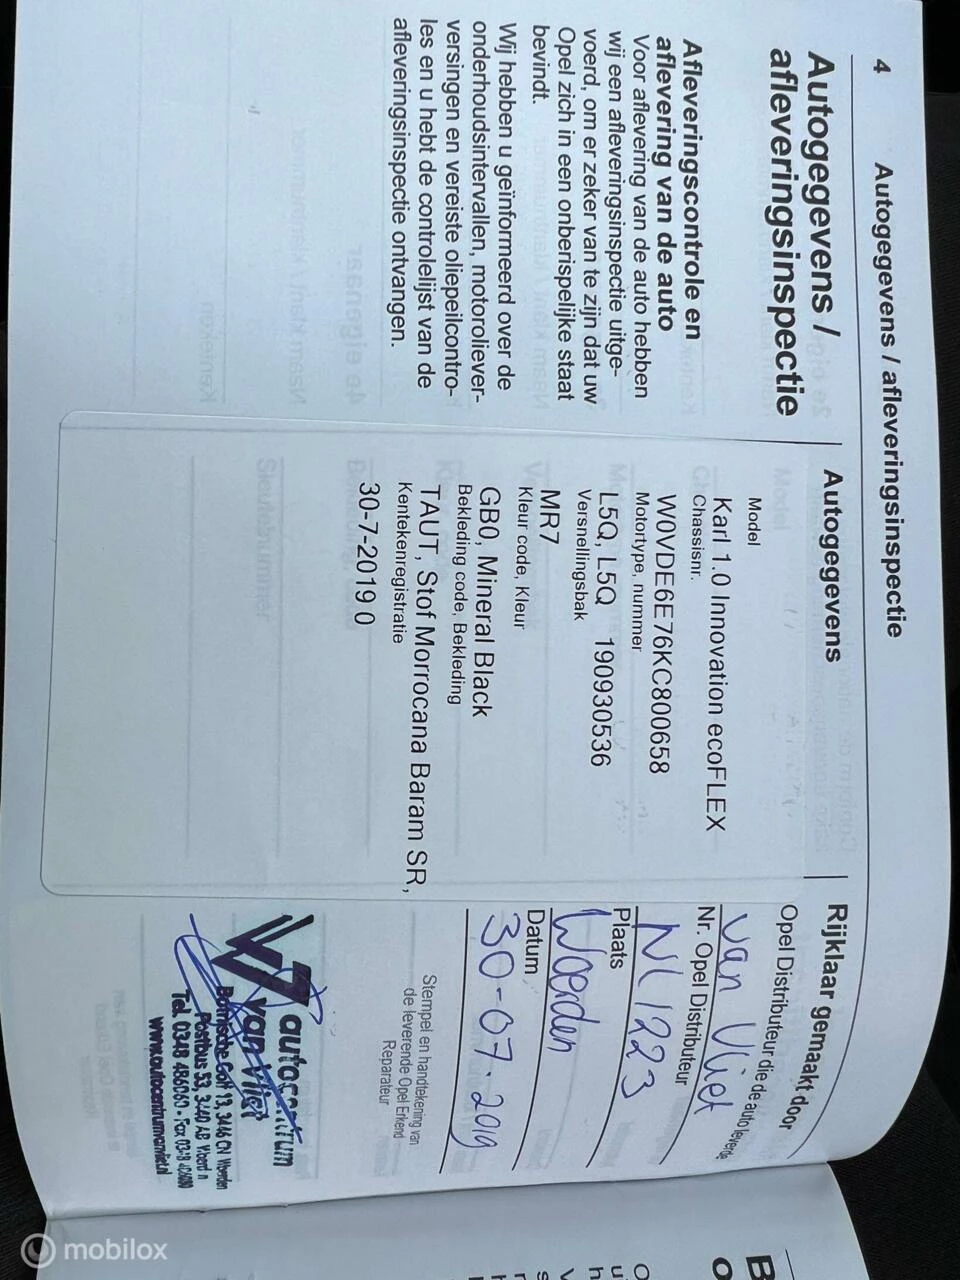 4
Autogegevens / afleveringsinspectie
Autogegevens /
afleveringsinspectie
Afleveringscontrole en
aflevering van de auto
Voor aflevering van de auto hebben
wij een afleveringsinspectie uitge-
voerd, om er zeker van te zijn dat uw
Opel zich in een onberispelijke staat
bevindt.
Wij hebben u geïnformeerd over de
onderhoudsintervallen, motoroliever-
versingen en vereiste oliepeilcontro-
les en u hebt de controlelijst van de
afleveringsinspectie ontvangen.
Autogegevens
Model
Karl 1.0 Innovation ecoFLEX
Chassisnr.
W0VDE6E76KC800658
Motortype, nummer
L5Q, L5Q 190930536
Versnellingsbak
MR7
Kleur code, Kleur
GB0, Mineral Black
Bekleding code, Bekleding
TAUT, Stof Morrocana Baram SR,
Kentekenregistratie
30-7-2019 0
Rijklaar gemaakt door
Opel Distributeur die de auto leverde
van Vliet
Nr. Opel Distributeur
NL1223
Plaats
Woerden
Datum
30-07-2019
Stempel en handtekening van
de leverende Opel Erkend
Reparateur
autocentrum
van Vliet
Botnische Golf 13, 3446 CN Woerden
Postbus 53, 3440 AB Woerden
Tel. 0348 486060 - Fax
www.autocentrumvanvliet.nl
mobilox